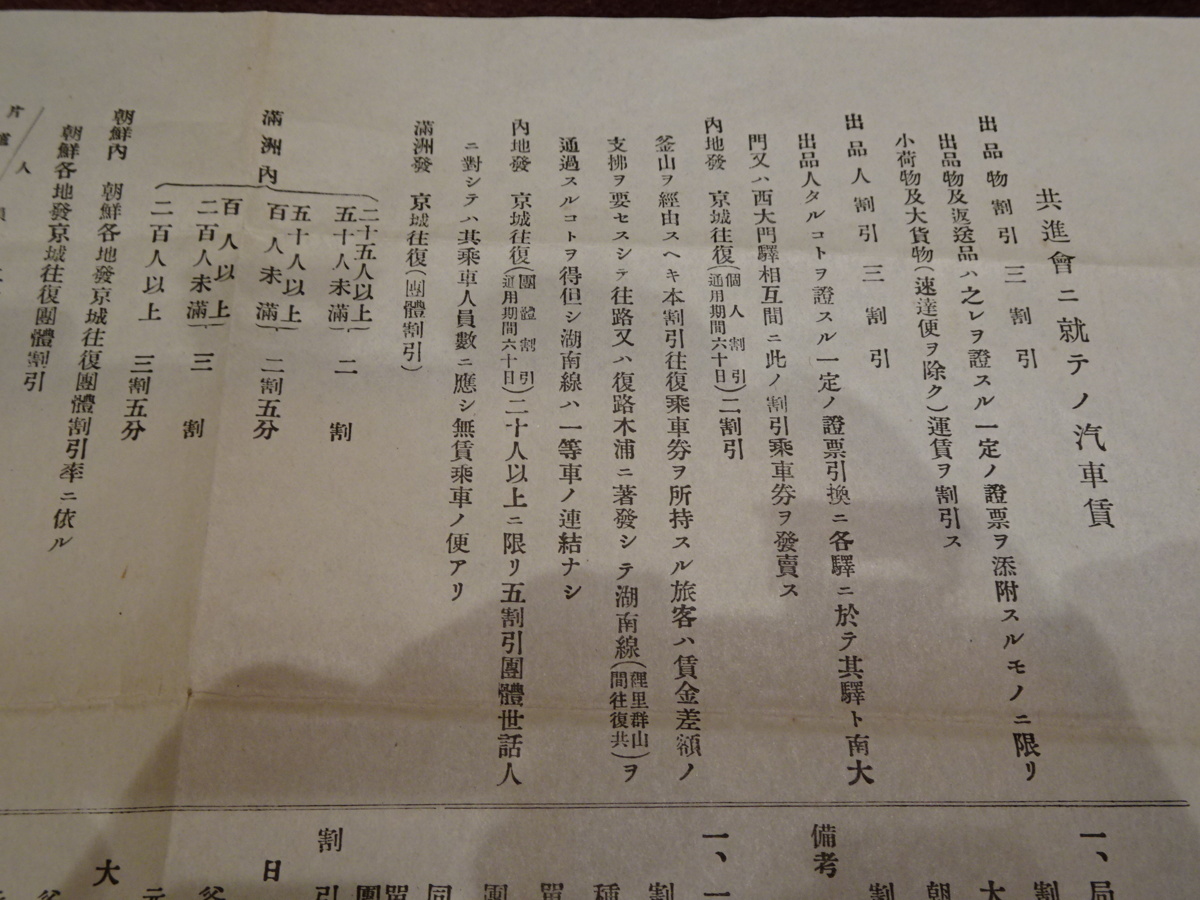 共進會ニ就テノ汽車賃
出品物割引 三割引
出品物及返送品ハ之レヲ證スル一定ノ證票ヲ添附スルモノニ限リ
小荷物及大貨物(速達便ヲ除ク)運賃ヲ割引ス
出品人割引 三割引
出品人タルコトヲ證スル一定ノ證票引換ニ各驛ニ於テ其驛ト南大
門又ハ西大門驛相互間ニ此ノ割引乘車券ヲ發賣ス
內地發 京城往復(個人割引 通用期間六十日)二割引
釜山ヲ經由スヘキ本割引往復乘車券ヲ所持スル旅客ハ賃金差額ノ
支拂ヲ要セスシテ往路又ハ復路木浦ニ著發シテ湖南線(裡里群山間往復共)ヲ
通過スルコトヲ得但シ湖南線ハ一等車ノ連結ナシ
內地發 京城往復(團體割引 通用期間六十日)二十人以上ニ限リ五割引團體世話人
ニ對シテハ其乘車人員數ニ應シ無賃乘車ノ便アリ
滿洲發 京城往復(團體割引)
滿洲內
二十五人以上 五十人未滿 二割
五十人以上 百人未滿 二割五分
百人以上 二百人未滿 三割
二百人以上 三割五分
朝鮮內 朝鮮各地發京城往復團體割引率ニ依ル
朝鮮各地發京城往復團體割引
人
片
一、局
割
大
朝
割
備考
一、一
割
種
單
團
同
單
團
割引
日
元
大